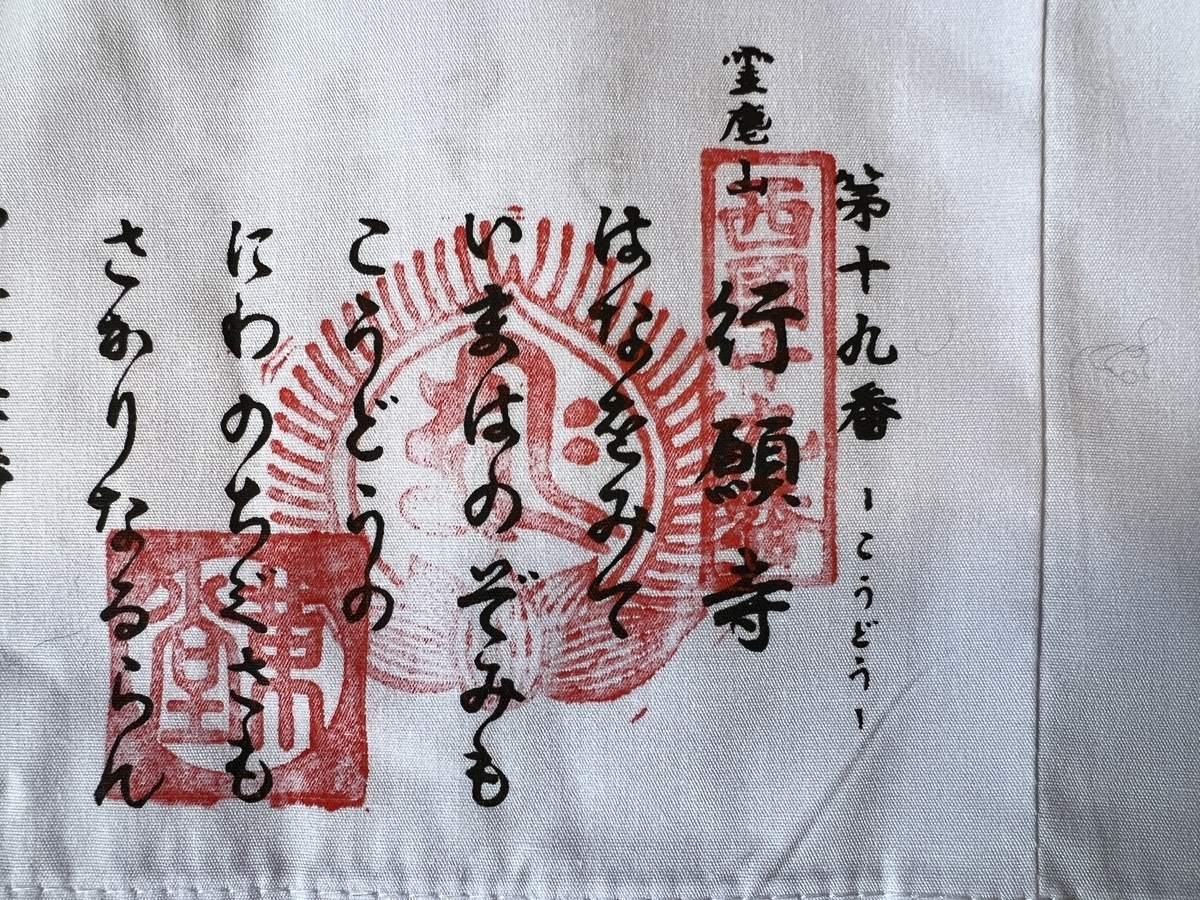 第十九番 ーこうどうー
霊麀山 行願寺
西国
はなをみて
いまはのぞみも
こうどうの
にわのちぐさも
さかりなるらん
革堂